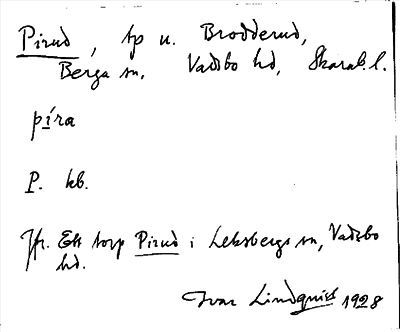 Pirud, tp u. Brodderud,
Berga sn, Vadsbo hd, Skarab. l.
píra
P. kb.
Jfr. Ett torp Pirud i Leksbergs sn, Vadsbo
hd.
Ivar Lindquist 1928